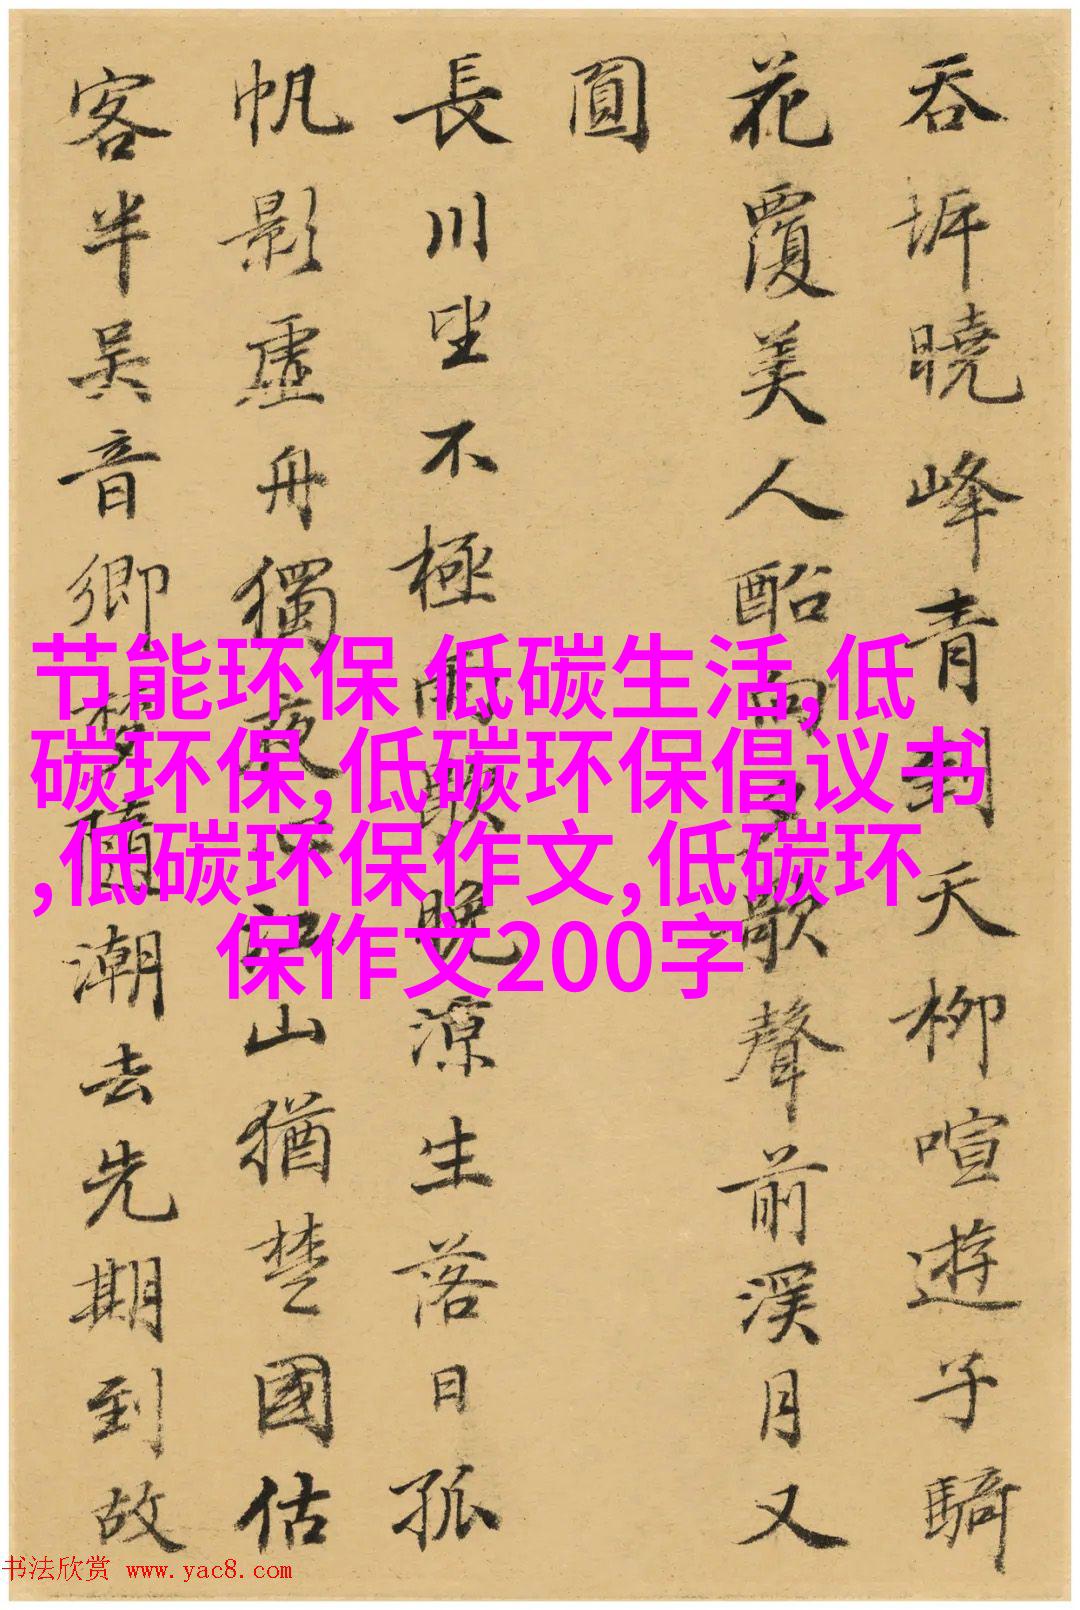 吞坼曉峰青到天柳喧遊子騎
花覆美人酩向夕歌聲前溪月又
圓
長川坐不極雨歇晚涼生落日孤
帆影虛舟獨夜情江山猶楚國估
客半吳音鄉夢隨潮去先期到故
节能环保 低碳生活,低
碳环保,低碳环保倡议书
,低碳环保作文,低碳环
保作文200字
书法欣赏 www.yac8.com